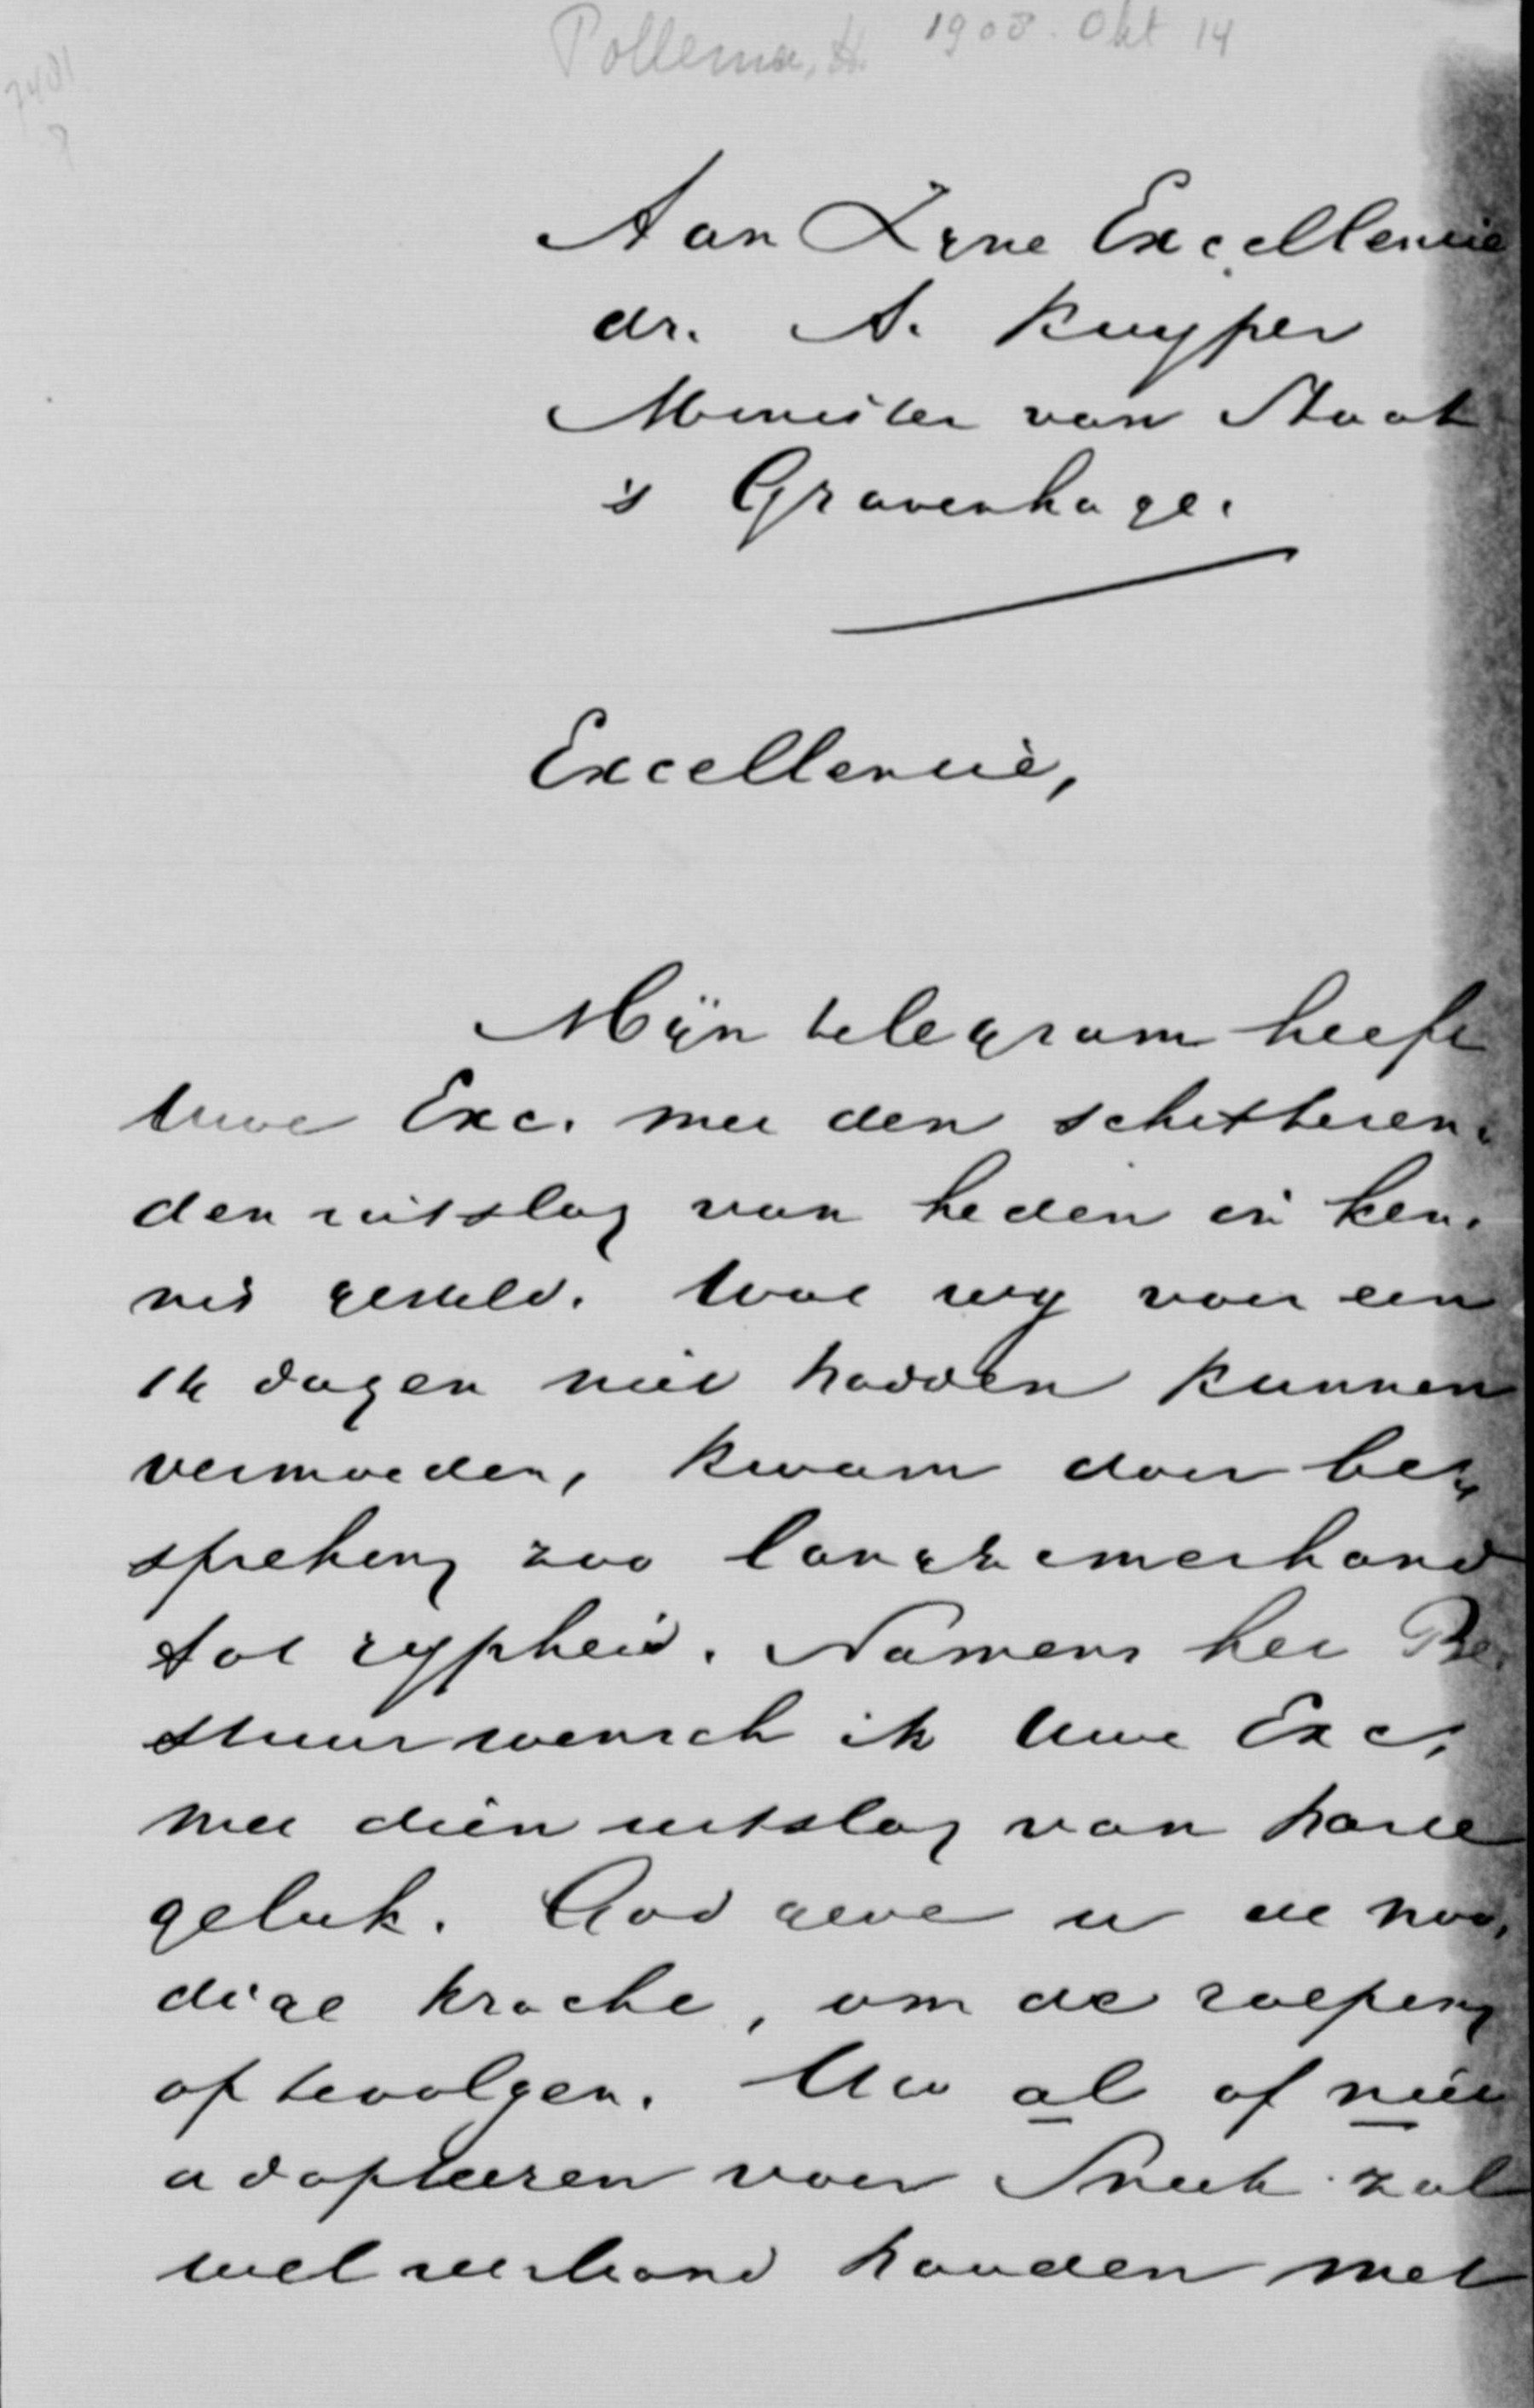 Pollema, H. 1908. Okt 14
7401
Aan Zijne Excellentie
dr. A. Kuyper
Minister van Staat
's Gravenhage.
Excellentie,
Mijn telegram heeft
Uwe Exc. met den schitteren-
den uitslag van heden in ken-
nis gesteld. Wat wij voor een
14 dagen niet hadden kunnen
vermoeden, kwam door be-
spreking zoo langzamerhand
tot rijpheid. Namens het Be-
stuur wensch ik Uwe Exc.
met dien uitslag van harte
geluk. God geve u de noo-
dige kracht, om de roeping
op te volgen. Uw al of niet
adopteeren voor Sneek zal
wel verband houden met